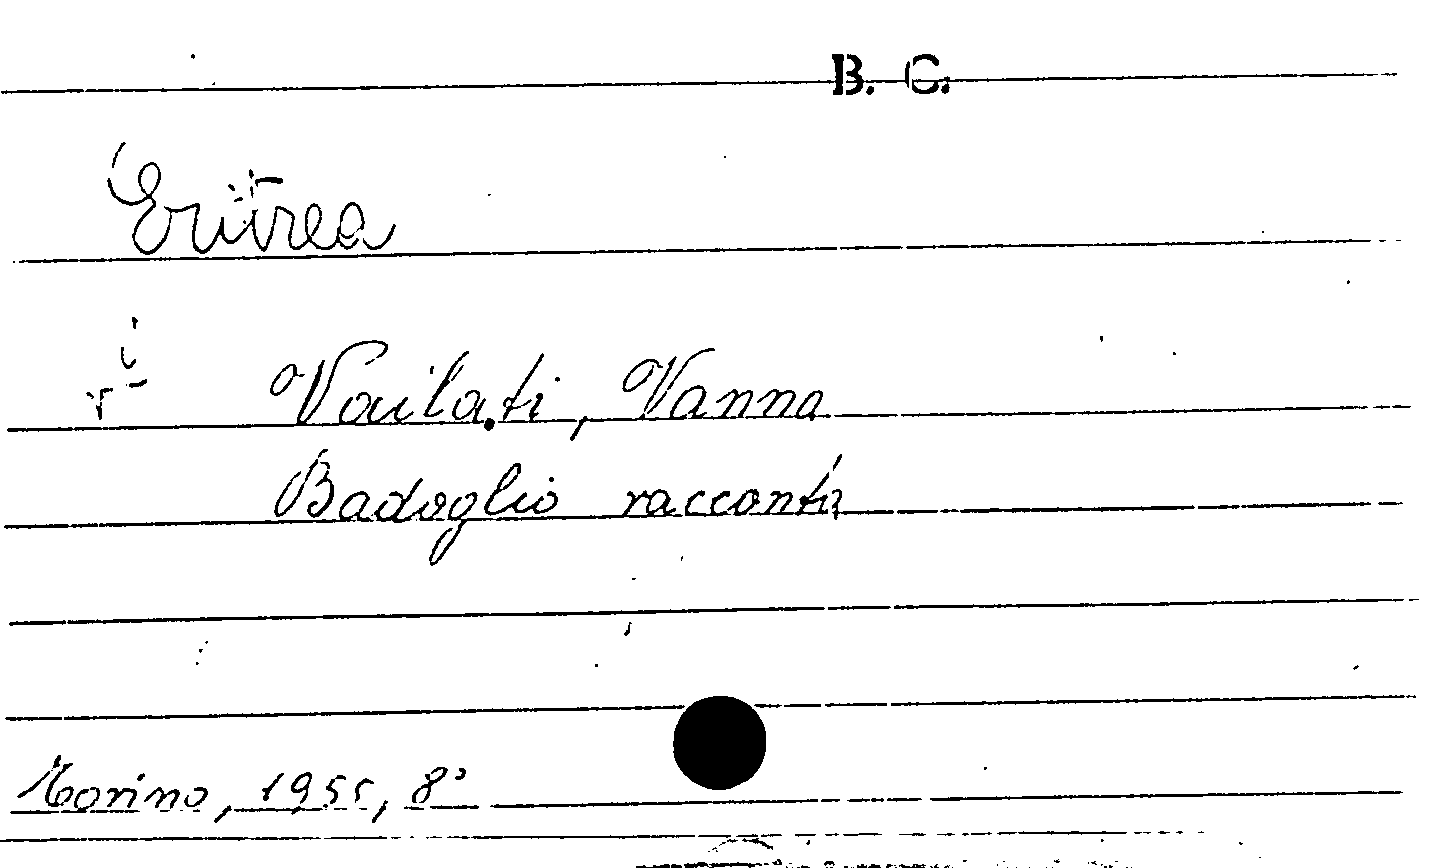 B. C.
Eritrea
vi Vailati, Vanna
Badoglio racconta
Torino, 1955, 8°